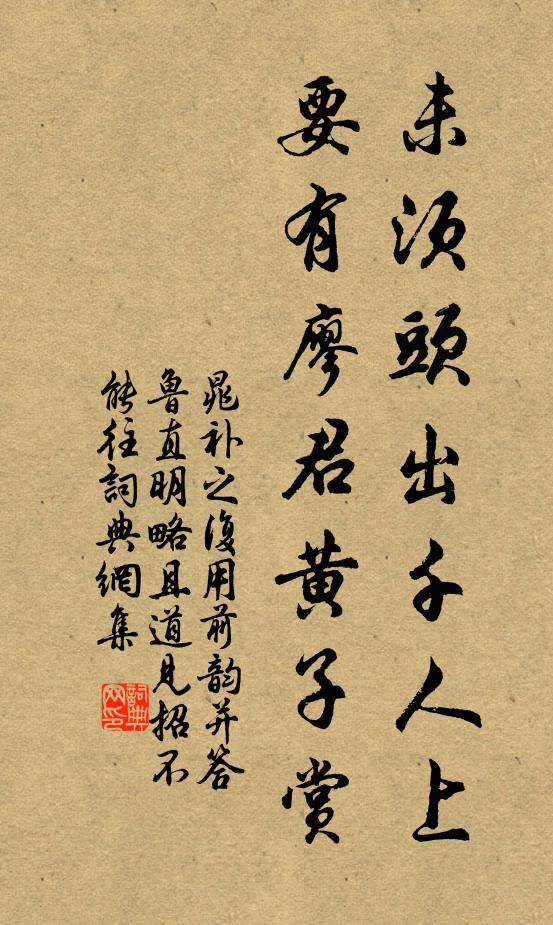 未須頭出千人上
要有廖君黄子賞
晁补之復用前韵并答
魯直明略且道見招不
能往詞典網集
詞典网印